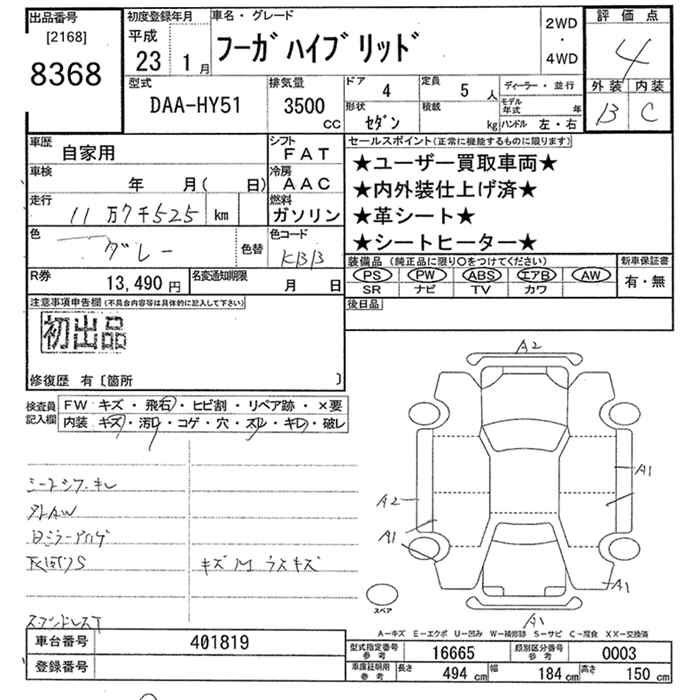 出品番号
[2168]
8368
初度登録年月
平成
23 1月
車名・グレード
フーガハイブリッド
2WD
・
4WD
評価点
4
外装 内装
B C
型式
DAA-HY51
排気量
3500
CC
ドア 4
定員 5 人
形状 セダン
積載 kg
ディーラー・並行
モデル年式 年
ハンドル 左・右
車歴 自家用
シフト FAT
車検 年 月( 日)
冷房 AAC
走行 11万7千525 km
燃料 ガソリン
色 グレー
色替
色コード KBB
R券 13,490円
名変通知期限 月 日
セールスポイント(正常に機能するものに限ります)
★ユーザー買取車両★
★内外装仕上げ済★
★革シート★
★シートヒーター★
装備品(純正品に限り○をつけてください)
PS PW ABS エアB AW
SR ナビ TV カワ
新車保証書
有・無
後日品
注意事項申告欄(不具合内容等は具体的に記入して下さい)
初出品
修復歴 有〔箇所 〕
検査員記入欄
FW キズ・飛石・ヒビ割・リペア跡・×要
内装 キズ・汚レ・コゲ・穴・スレ・キレ・破レ
キズM ウスキズ
A2
A1
A2
A1
A1
A1
スペア
A-キズ E-エクボ U-凹み W-補修跡 S-サビ C-腐食 XX-交換済
車台番号 401819
登録番号
型式指定番号参考 16665
類別区分番号参考 0003
車庫証明用参考 長さ 494cm 幅 184cm 高さ 150cm